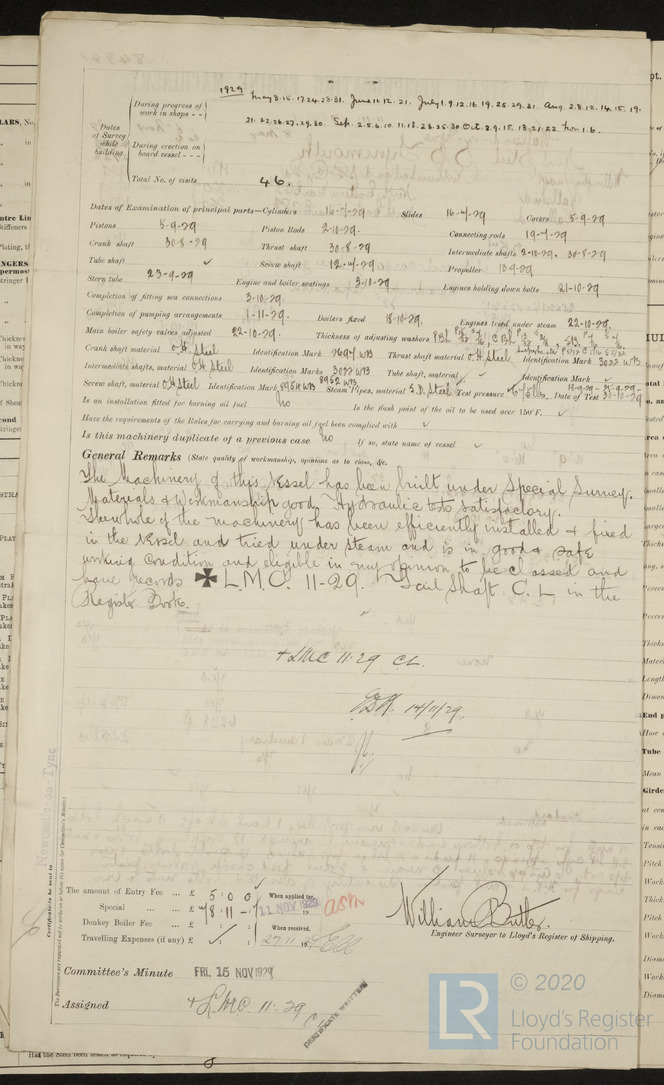 1929
During progress of work in shops - - May 8.15.17.24.28.31. June 11.12.21. July 1.9.12.16.19.25.29.31. Aug. 2.8.12.14.15.19.
21.22.26.27.29.30 Sep. 2.5.6.10.11.13.23.25.30 Oct. 2.9.15.18.21.22 Nov 1.6.
Dates of Survey while building
During erection on board vessel - - -
Total No. of visits 46.
Dates of Examination of principal parts—Cylinders 16-7-29 Slides 16-7-29 Covers 5-9-29
Pistons 5-9-29 Piston Rods 2-10-29. Connecting rods 19-7-29
Crank shaft 30-8-29 Thrust shaft 30-8-29 Intermediate shafts 2-10-29. 30-8-29
Tube shaft ✓ Screw shaft 12-7-29 Propeller 13-9-29
Stern tube 23-9-29 Engine and boiler seatings 3-10-29 Engines holding down bolts 21-10-29
Completion of fitting sea connections 3-10-29
Completion of pumping arrangements 1-11-29. Boilers fixed 18-10-29. Engines tried under steam 22-10-29.
Main boiler safety valves adjusted 22-10-29. Thickness of adjusting washers
Crank shaft material O.H. Steel Identification Mark 7697 WB Thrust shaft material O.H. Steel Identification Mark 3022 WB
Intermediate shafts, material O.H Steel Identification Marks 3022 WB Tube shaft, material ✓ Identification Mark ✓
Screw shaft, material O.H Steel Identification Mark 8952 WB Steam Pipes, material S.D. Steel Test pressure 675 lbs. Date of Test
Is an installation fitted for burning oil fuel No Is the flash point of the oil to be used over 150°F. ✓
Have the requirements of the Rules for carrying and burning oil fuel been complied with ✓
Is this machinery duplicate of a previous case No If so, state name of vessel ✓
General Remarks (State quality of workmanship, opinions as to class, &c.
The Machinery of this Vessel has been built under Special Survey.
Materials & Workmanship good. Hydraulic tests satisfactory.
The whole of the machinery has been efficiently installed & fixed
in the Vessel and tried under steam and is in good & safe
working condition and eligible in my opinion to be classed and
have records ✠ L.M.C. 11-29. Tail Shaft C.L in the
Register Book.
+LMC 11.29 CL.
14/11/29.
Newcastle-on-Tyne
Certificate to be sent to
The Surveyors are requested not to write on or below the space for Committee's Minute.
The amount of Entry Fee ... £ 5 : 0 : 0 When applied for,
Special ... ... £ 78 : 11 : - 11 NOV 1929
Donkey Boiler Fee ... £ : : When received,
Travelling Expenses (if any) £ ✓ : 27.11.1929
William Butler.
Engineer Surveyor to Lloyd's Register of Shipping.
Committee's Minute FRI. 15 NOV 1929
Assigned +LMC 11.29
CL
CERTIFICATE WRITTEN
LR
© 2020
Lloyd's Register
Foundation